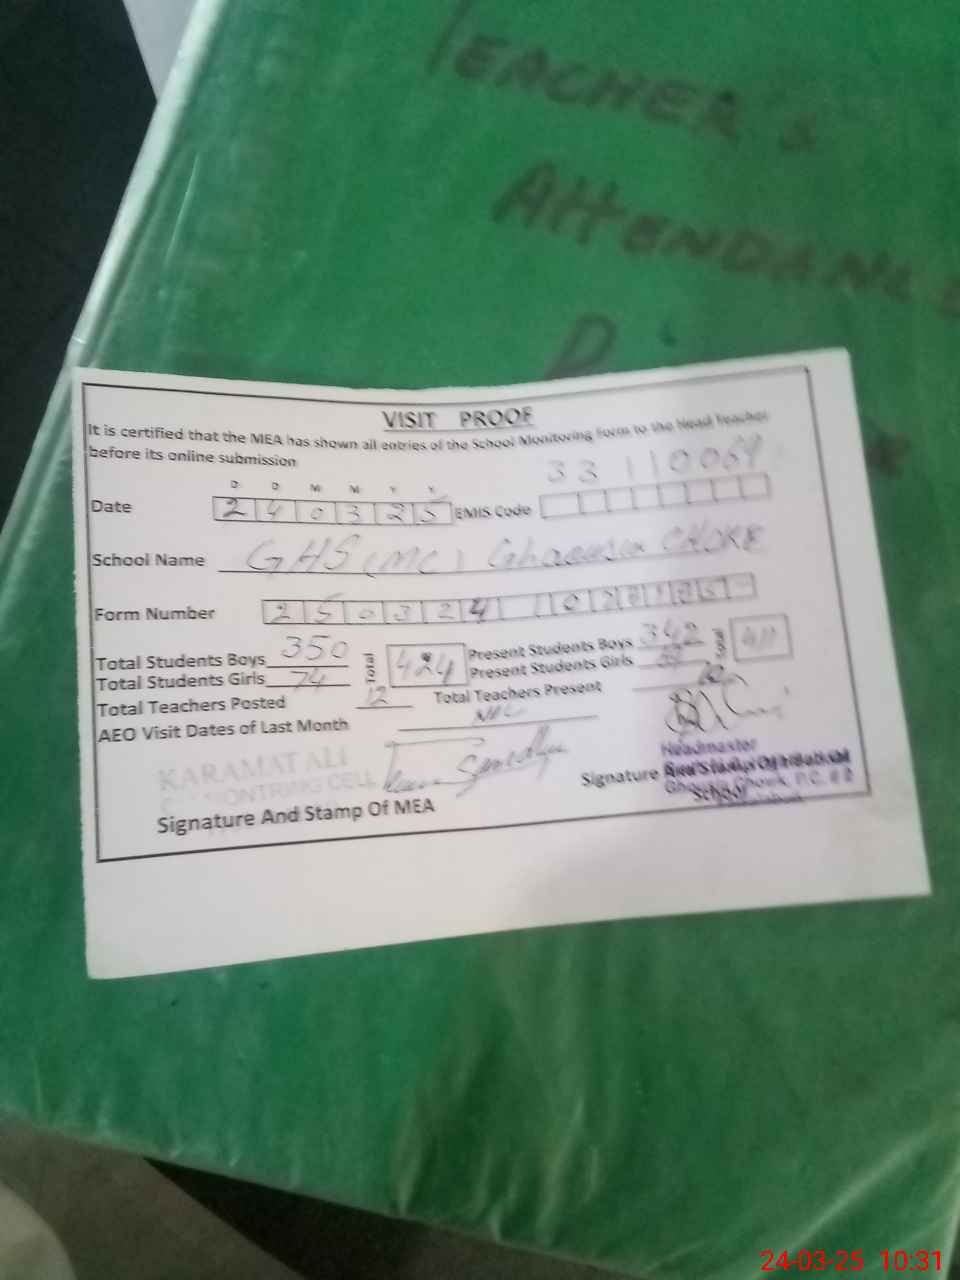 TEACHER'S
ATTENDANCE
VISIT PROOF
It is certified that the MEA has shown all entries of the School Monitoring Form to the Head Teacher
before its online submission
D D M M Y Y
33110064
Date 240325 EMIS Code
School Name GHS (MC) CHOKE
Form Number 250324
Total Students Boys 350 Total 424 Present Students Boys 342 Total 411
Total Students Girls 74 Present Students Girls
Total Teachers Posted 12 Total Teachers Present
AEO Visit Dates of Last Month
KARAMAT ALI
MONTRING CELL
Signature And Stamp Of MEA
Headmaster
Signature And Stamp Of Head Of
School
24-03-25 10:31